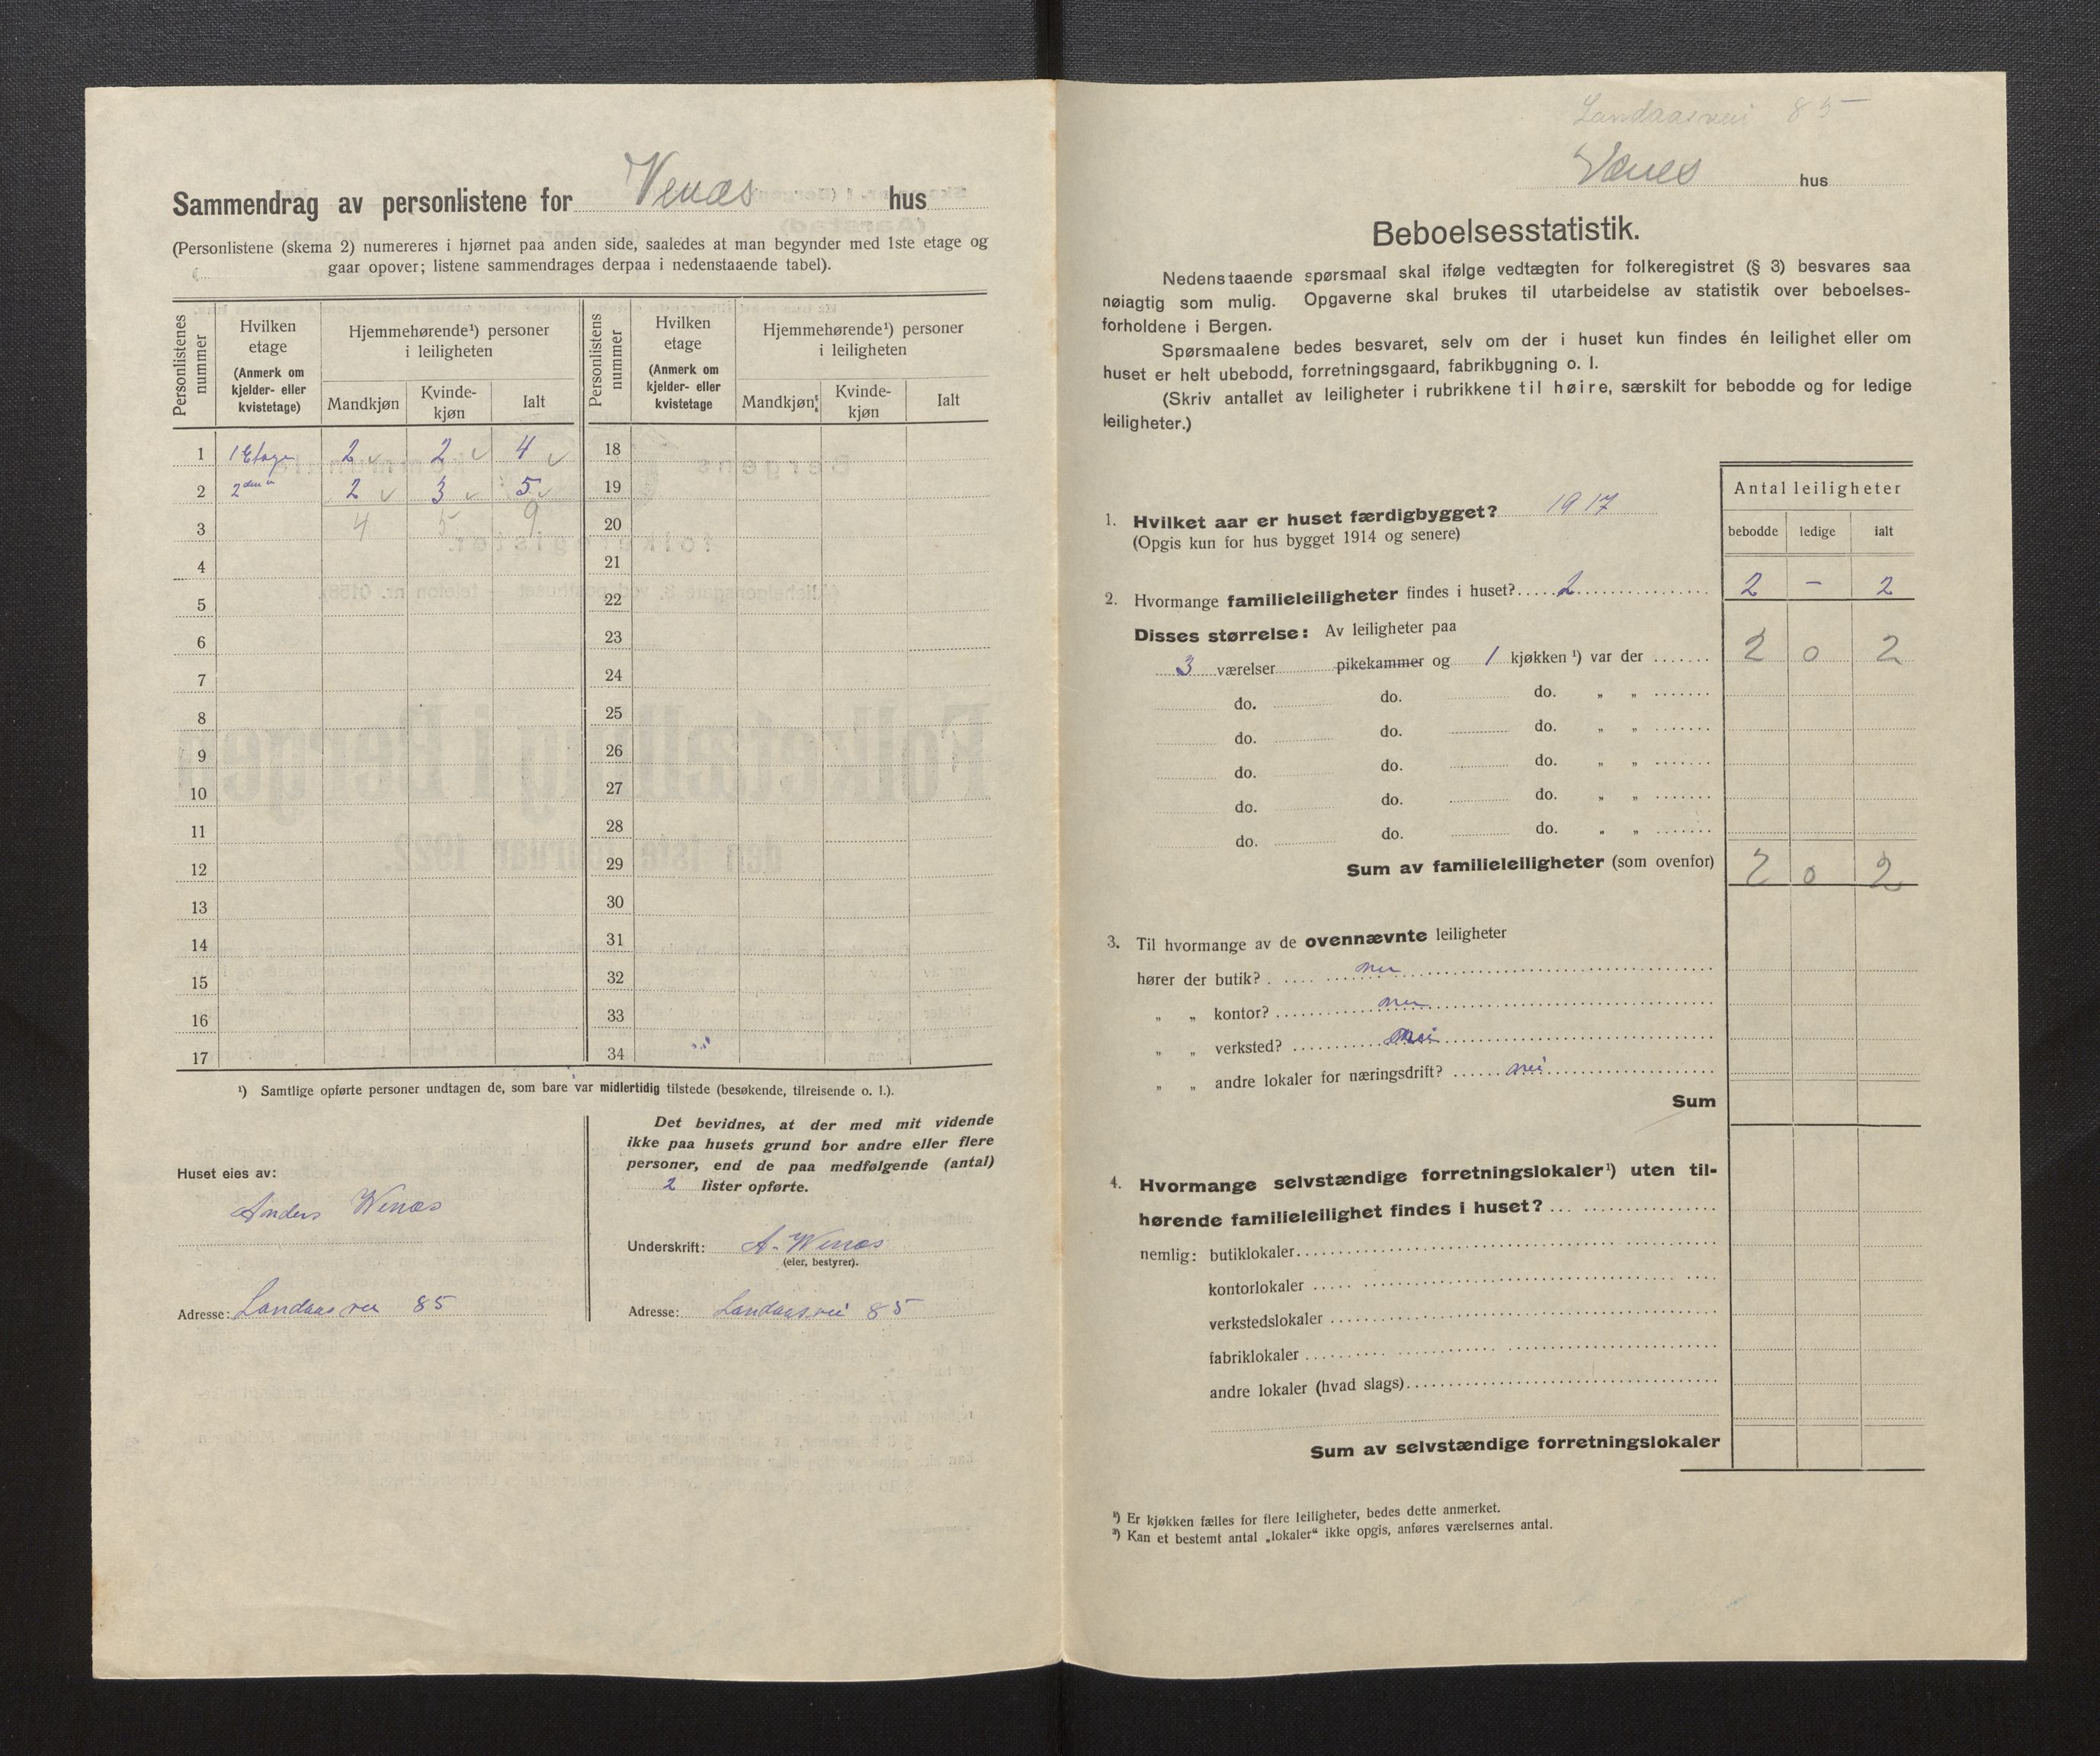 Sammendrag av personlistene for Venæs hus
(Personlistene (skema 2) numereres i hjørnet paa anden side, saaledes at man begynder med 1ste etage og
gaar opover; listene sammendrages derpaa i nedenstaaende tabel).
Personlistenes nummer
Hvilken etage (Anmerk om kjelder- eller kvistetage)
Hjemmehørende¹) personer i leiligheten
Mandkjøn Kvindekjøn Ialt
Personlistens nummer
Hvilken etage (Anmerk om kjelder- eller kvistetage
Hjemmehørende¹) personer i leiligheten
Mandkjøn Kvinde-kjøn Ialt
1 1 Etage 2 v 2 v 4 v 18
2 2den " 2 v 3 v 5 v 19
3 4 5 9 20
4 21
5 22
6 23
7 24
8 25
9 26
10 27
11 28
12 29
13 30
14 31
15 32
16 33
17 34
¹) Samtlige opførte personer undtagen de, som bare var midlertidig tilstede (besøkende, tilreisende o. l.).
Huset eies av:
Anders Wenæs
Adresse: Landaasvei 85
Det bevidnes, at der med mit vidende
ikke paa husets grund bor andre eller flere
personer, end de paa medfølgende (antal)
2 lister opførte.
Underskrift: A. Wenæs
(eier, bestyrer).
Adresse: Landaasvei 85
Landaasvei 85
Venes hus
Beboelsesstatistik.
Nedenstaaende spørsmaal skal ifølge vedtægten for folkeregistret (§ 3) besvares saa
nøiagtig som mulig. Opgaverne skal brukes til utarbeidelse av statistik over beboelses-
forholdene i Bergen.
Spørsmaalene bedes besvaret, selv om der i huset kun findes én leilighet eller om
huset er helt ubebodd, forretningsgaard, fabrikbygning o. l.
(Skriv antallet av leiligheter i rubrikkene til høire, særskilt for bebodde og for ledige
leiligheter.)
Antal leiligheter
bebodde ledige ialt
1. Hvilket aar er huset færdigbygget? 1917
(Opgis kun for hus bygget 1914 og senere)
2. Hvormange familieleiligheter findes i huset? 2 2 - 2
Disses størrelse: Av leiligheter paa
3 værelser pikekammer og 1 kjøkken ¹) var der 2 0 2
do. do. do. " "
do. do. do. " "
do. do. do. " "
do. do. do. " "
do. do. do. " "
Sum av familieleiligheter (som ovenfor) 2 0 2
3. Til hvormange av de ovennævnte leiligheter
hører der butik? nei
" " kontor? nei
" " verksted? nei
" " andre lokaler for næringsdrift? nei
Sum
4. Hvormange selvstændige forretningslokaler¹) uten til-
hørende familieleilighet findes i huset?
nemlig: butiklokaler
kontorlokaler
verkstedslokaler
fabriklokaler
andre lokaler (hvad slags)
Sum av selvstændige forretningslokaler
¹) Er kjøkken fælles for flere leiligheter, bedes dette anmerket.
²) Kan et bestemt antal „lokaler" ikke opgis, anføres værelsernes antal.